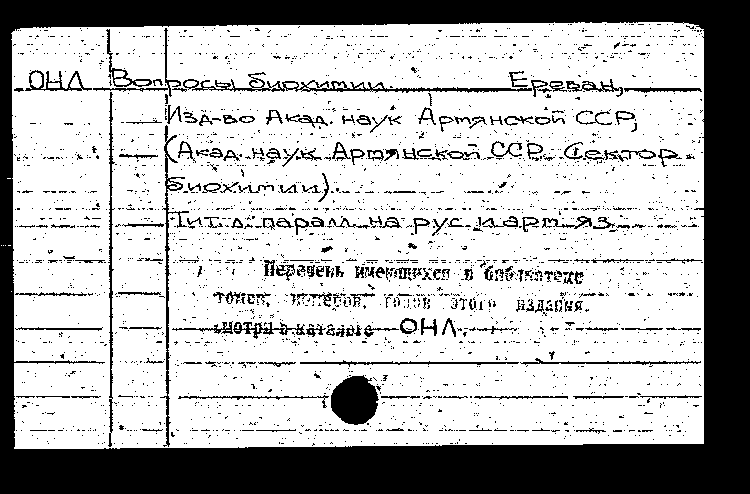 ОНЛ Вопросы биохимии. Ереван,
Изд-во Акад. наук Армянской ССР,
(Акад. наук Армянской ССР. Сектор
биохимии).
Тит. л. паралл. на рус. и арм. яз.
Перечень имеющихся в библиотеке
томов, номеров, годов этого издания.
смотри в каталоге ОНЛ.